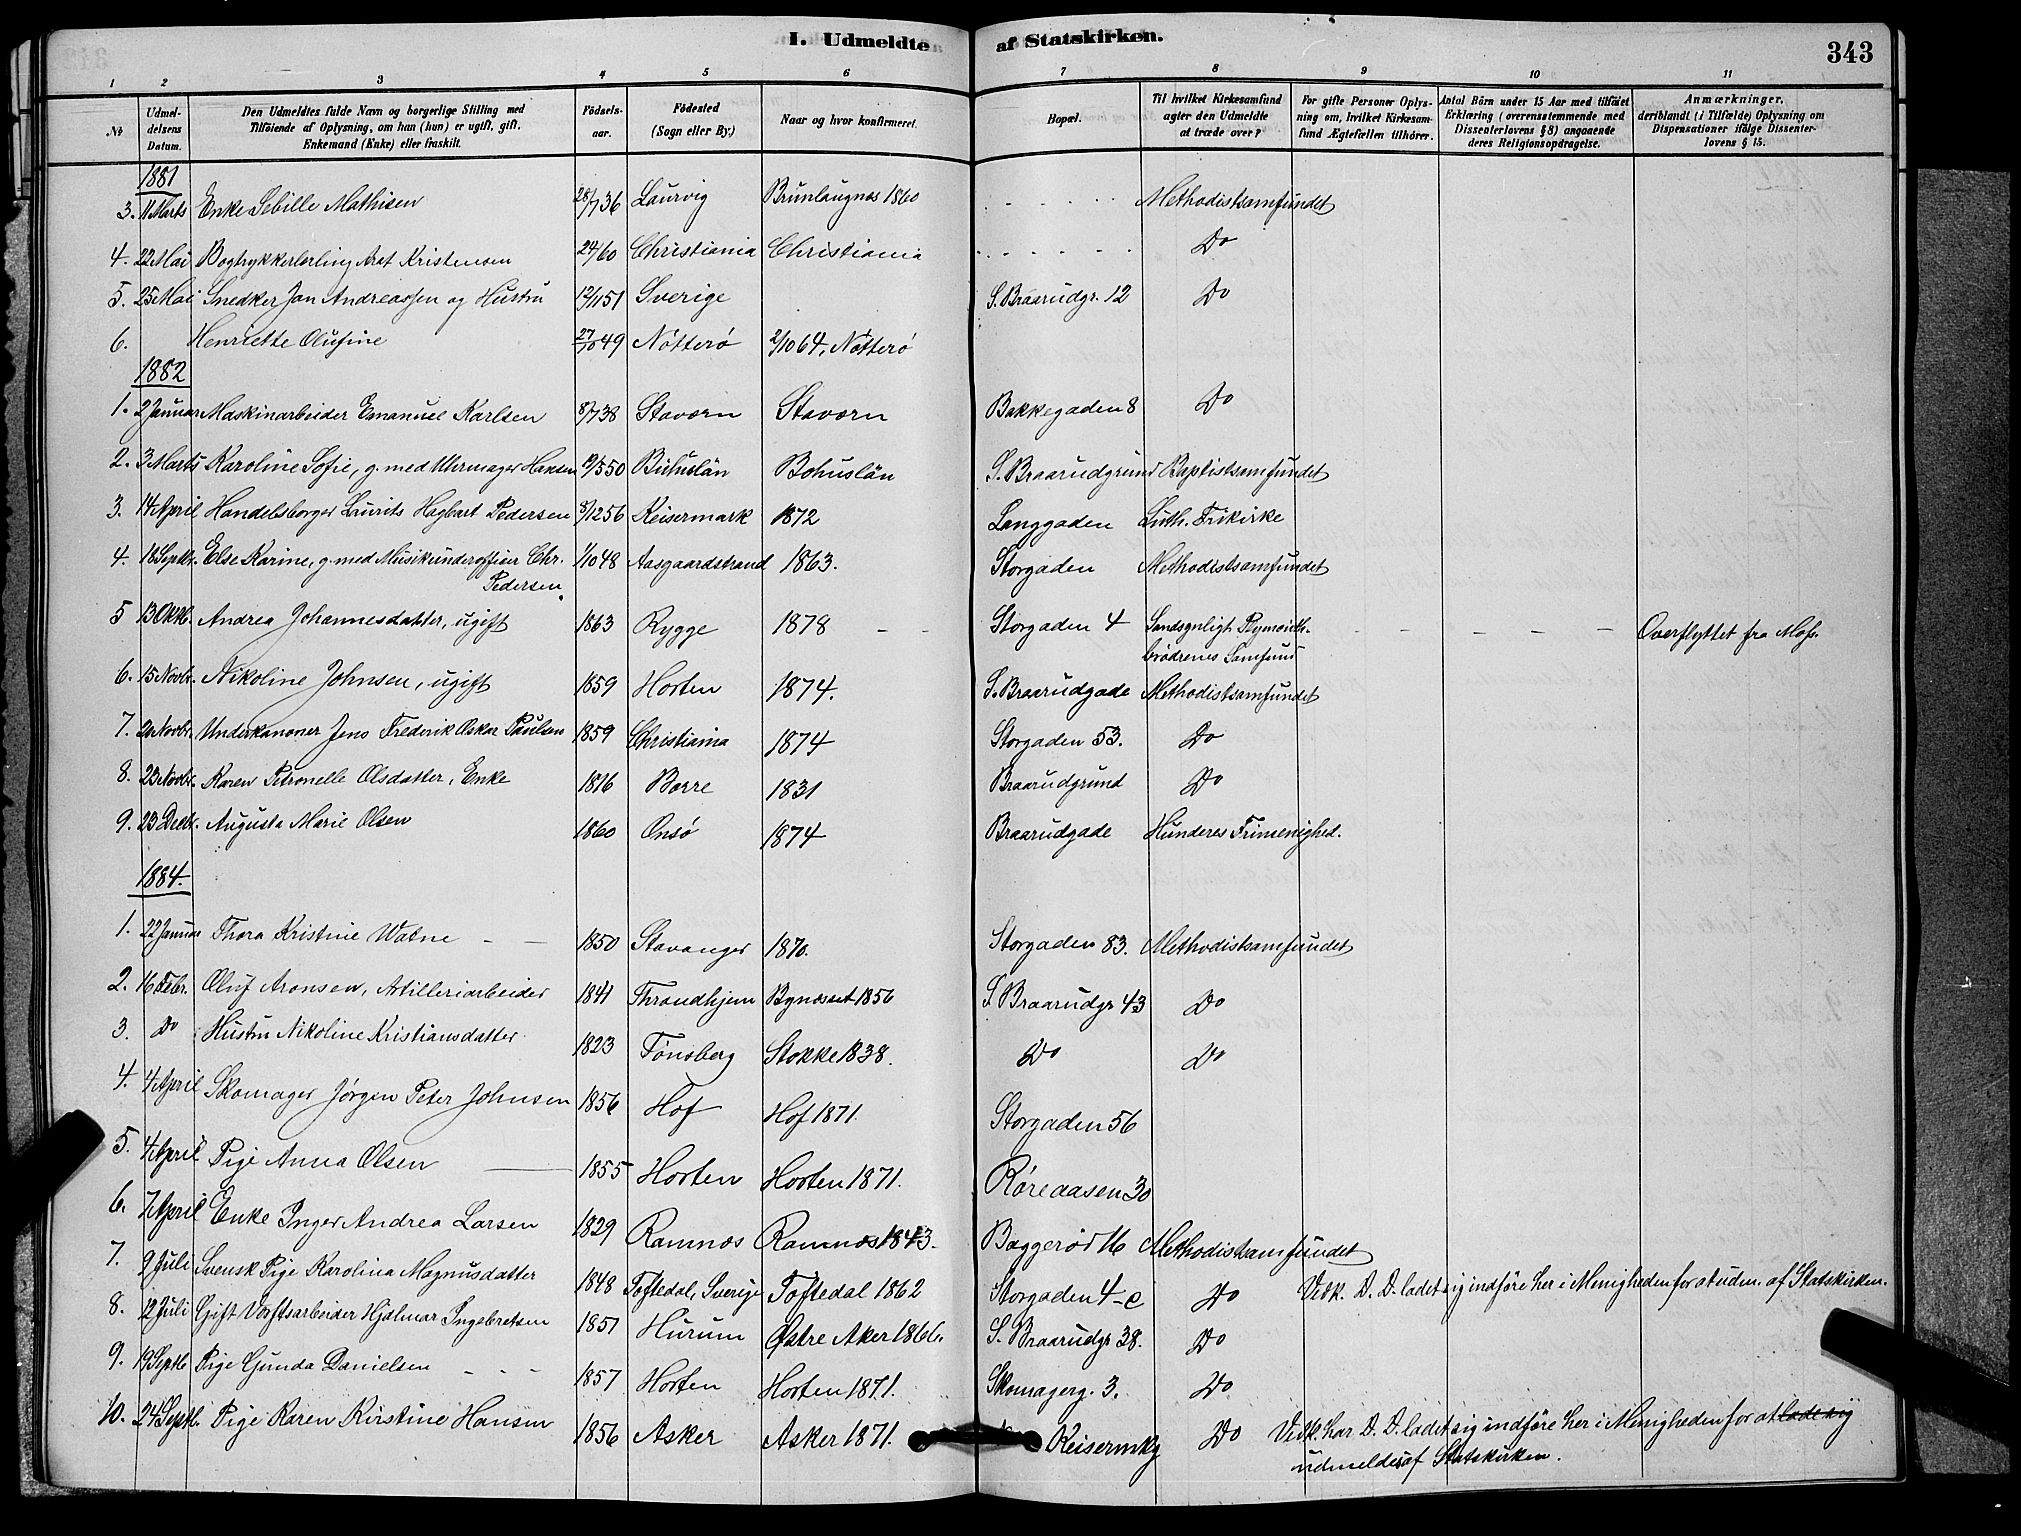 I. Udmeldte af Statskirken.
343
1 2 3 4 5 6 7 8 9 10 11
No
Udmel-
delsens
Datum.
Den Udmeldtes fulde Navn og borgerlige Stilling med
Tilföiende af Oplysning, om han (hun) er ugift, gift,
Enkemand (Enke) eller fraskilt.
Födsels-
aar.
Födested
(Sogn eller By.)
Naar og hvor konfirmeret.
Bopæl.
Til hvilket Kirkesamfund
agter den Udmeldte
at træde over?
For gifte Personer Oplys-
ning om, hvilket Kirkesam-
fund Ægtefællen tilhörer.
Antal Börn under 15 Aar med tilföiet
Erklæring (overensstemmende med
Dissenterlovens § 8) angaaende
deres Religionsopdragelse.
Anmærkninger,
deriblandt (i Tilfælde) Oplysning om
Dispensationer ifölge Dissenter-
lovens § 15.
1881
3. 11 Marts Enke Sebille Mathisen 28/7 36 Laurvig Brunlaugnæs 1860 Methodistsamfundet
4. 22 Mai Bogtrykkerlærling Kristensen 60 Christiania Christiania Do
5. 25 Mai Snedker Jan Andreassen og Hustru 12/11 51 Sverige S. Braarudgr. 12 Do
6. Henriette Olufine 27/10 49 Nötterö 2/10 64, Nötterö
1882
1. 2 Januar Maskinarbeider Emanuel Karlsen 8/7 38 Stavern Stavern Bakkegaden 8 Do
2. 3 Marts Karoline Sofie, g. med Uhrmager Hansen 50 Bohuslän Bohuslän S. Braarudgrund Baptistsamfundet
3. 14 April Handelsborger Laurits Hagbart Pedersen 8/12 56 Keisermark 1872 Langgaden Luth. Frikirke
4. 18 Septbr. Else Karine, g. med Musikunderofficier Chr. 1/10 48 Aasgaardstrand 1863. Storgaden Methodistsamfundet
Pedersen.
5 13 Oktb. Andrea Johannesdatter, ugift 1863 Rygge 1878 Storgaden 4 Sandsynligt Plymouth- Overflyttet fra Moss.
brödrenes Samfund
6. 15 Novbr. Nikoline Johnsen, ugift 1859 Horten 1874. S. Braarudgade Methodistsamfundet
7. 20 Novbr. Underkanoner Jens Frederik Oskar Paulsen 1859 Christiania 1874 Storgaden 53. Do
8. 23 Novbr. Karen Petronelle Olsdatter, Enke 1816 Borre 1831 Braarudgrund Do
9. 23 Decbr. Augusta Marie Olsen 1860 Onsö 1874 Braarudgade Hunderes Frimenighed.
1884.
1. 22 Januar Thora Kristine Watne 1850 Stavanger 1870. Storgaden 83. Methodistsamfundet
2. 16 Febr. Oluf Aronsen, Artilleriarbeider 1841 Throndhjem Bynæsset 1856 S. Braarudgr 43 Do
3. Do Hustru Nikoline Kristiansdatter 1823 Tønsberg Stokke 1838. Do Do
4. 4 April Skomager Jørgen Peter Johnsen 1856 Hof Hof 1871. Storgaden 56
5. 4 April Pige Anna Olsen 1855 Horten Horten 1871. Røreaasen 30
6. 7 April Enke Inger Andrea Larsen 1829 Ramnæs Ramnæs 1843. Baggerød 16 Methodistsamfundet
7. 9 Juli Svensk Pige Karolina Magnusdatter 1848 Töftedal, Sverige Töftedal 1862 Storgaden 4-c Do Vedk. D. D. ladet sig indføre her i Menigheden for at udm. af Statskirken.
8. 12 Juli Gift Værftsarbeider Hjalmar Ingebretsen 1851 Hurum Østre Aker 1866. S. Braarudgr 38. Do
9. 19 Septb Pige Gunda Danielsen 1857 Horten Horten 1871. Skomagerg. 3. Do
10. 24 Septb. Pige Karen Kirstine Hansen 1856 Asker Asker 1871. Keisermkg Do Vedk. har D. D. ladet sig indføre her i Menigheden for at lade sig
udmeldes af Statskirken.